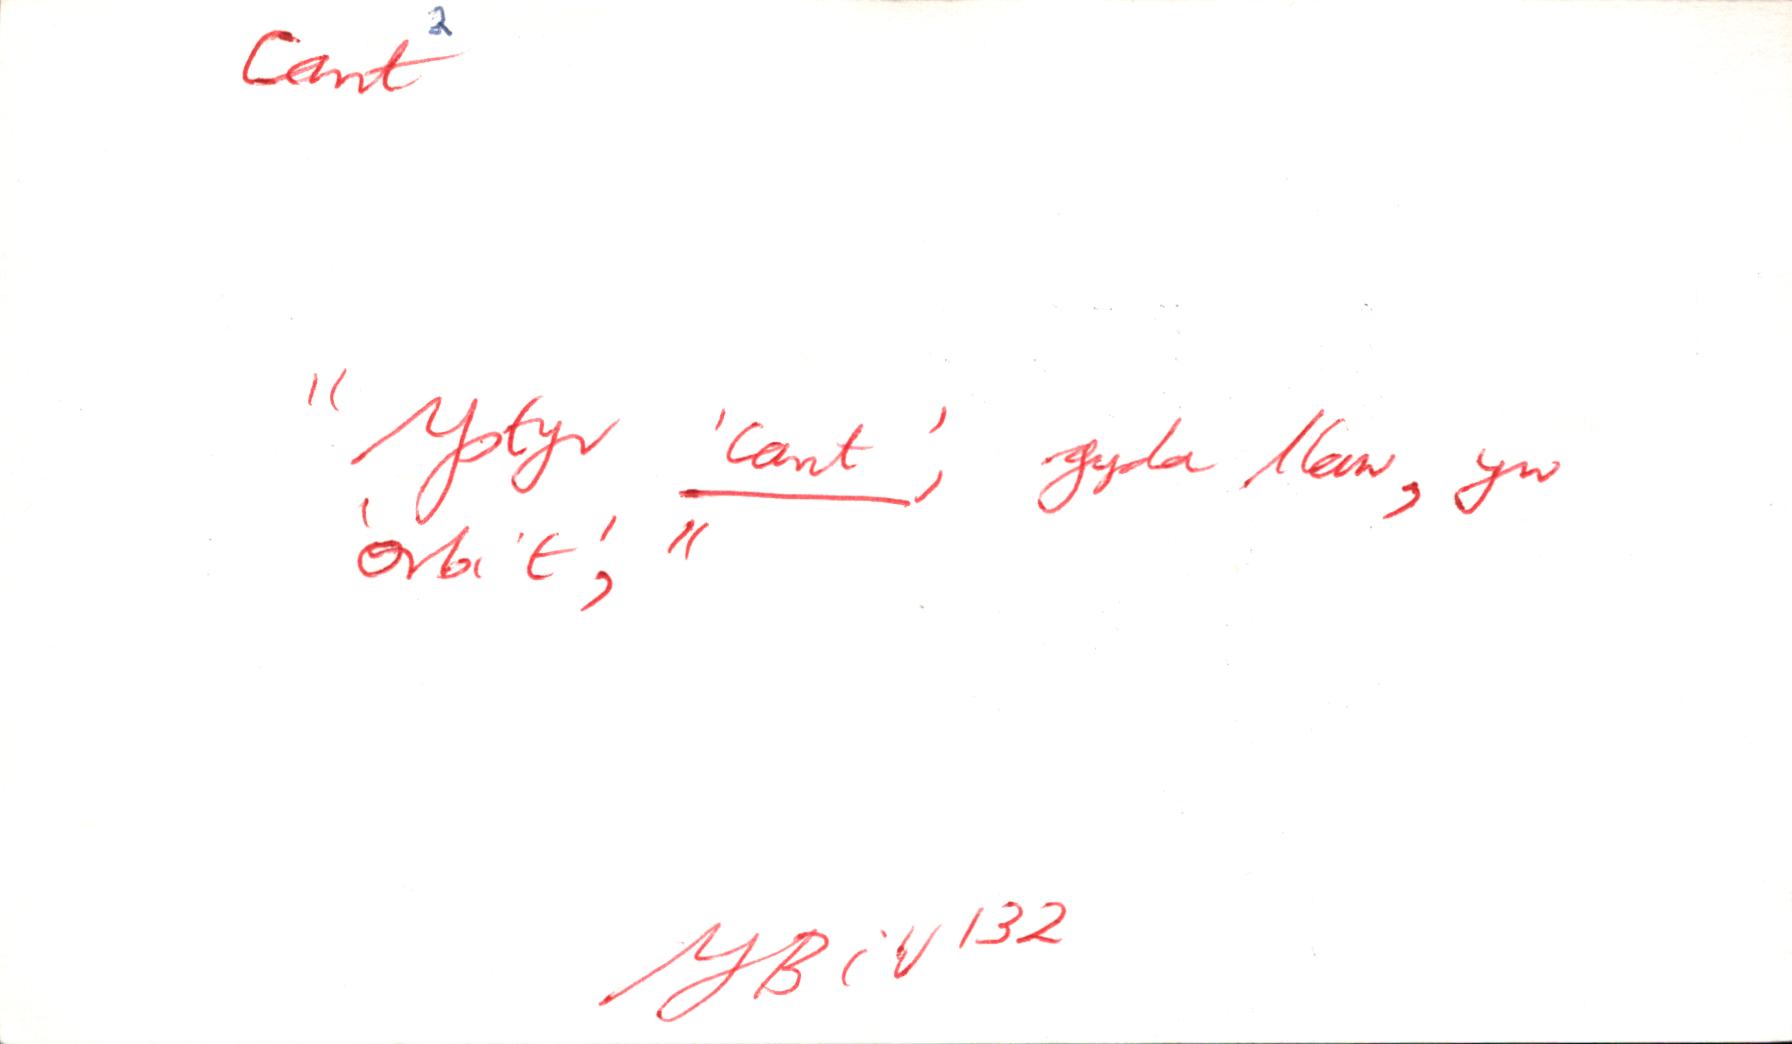 Cant²
"Ystyr 'cant', gyda llaw, yw
'orbit', "
YB iv 132